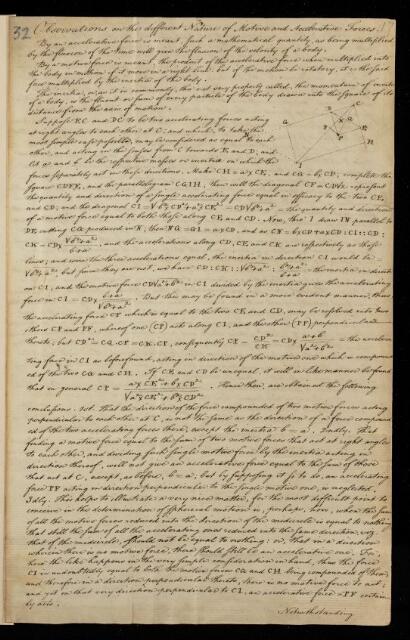 32 Observations on the different Nature of Motive and Accelerative Forces.
By an accelerative force is meant, such a mathematical quantity, as being multiplied
by the fluxion of the time will give the fluxion of the velocity of a body.
By a motive force is meant, the product of the accelerative force when multiplied into
the body in motion if it move in a right line: but if the motion be rotatory, it is the said
force multiplied by the inertia of the body.
The inertia, or, as it is commonly, tho not very properly called, the momentum of inertia
of a body, is the fluent or sum of every particle of the body drawn into the square of its
distance from the axis of motion.
Suppose EC and DC to be two accelerating forces acting
at right angles to each other at C; and which, to take the
most simple case possible, may be considered as equal to each
other, and acting on the
let a and b be the respective masses or inertias on which the
forces separately act in those directions. Make CH = a × CE, and CG = b × CD; complete the
square CDFE, and the parallelogram CGIH; then will the diagonal CF = CD√2 represent
the quantity and direction of a single accelerating force equal in efficacy to the two CE,
and CD; and the diagonal CI = √b²CD²+a²×CE² = CD√b²+a² = the quantity and direction
of a motive force equal to both those along CE and CD. Now, this I draw
DE, ending CG produced in N; then
CK = CD × , and the accelerations along CD, CE and CK are respectively as those
lines; and were the three accelerations equal, the inertia in direction CI would be
√b²+a²; but since they are not, we have CD : CK :: √b²+a² : = the inertia in direct-
on CI, and the motive force CD√a²+b² in CI divided by the inertia gives the accelerating
force in CI = CD × . But this may be found in a more evident manner; thus
the accelerating force CF which is equal to the two CE and CD, may be resolved into two
others CP and PF, whereof one (CP) acts along CI, and the other (PF) perpendicular
thereto; but CD² = CQ·CF = CK·CP, consequently CP = CD²/CK = CD × a+b/√a²+b² = the accelera-
ting force in CI as before found, acting in direction of the motive one which is compound-
ed of the two CG and CH. If CE and CD be unequal, it will in like manner be found
that in general CP = a×CE²+b×CD²/√a²×CE²+b²×CD². Hence then, are obtained the following
conclusions. 1st. that the direction of the force compounded of two motive forces acting
perpendicular to each other at C, is not the same as the direction of a force compound-
ed of the two accelerating forces there, except the inertia b = a. 2ndly. that
finding a motive force equal to the sum of two motive forces that act at right angles
to each other, and dividing such single motive force by the inertia acting in
direction thereof, will not give an accelerative force equal to the sum of those
that act at C, except as before, b = a, but by supposing it so to do, an accelerating
force PF acting in direction perpendicular to the single motive one, is neglected.
3dly. This helps to illustrate a very nice matter, for the most difficult point to
conceive in the determination of spherical motion is, perhaps, how, when the sum
of all the motive forces reduced into the direction of the midcircle is equal to nothing
that still the sum of all the accelerating ones reduced into the same direction, viz.
that of the midcircle, should not be equal to nothing: or, that in a direction
wherein there is no motive force, there should still be an accelerative one. For,
here the like happens in the very simple consideration in hand, thus the force
CI is undoubtedly equal to both the motive forces CG and CH being compounded of them,
and therefore in a direction perpendicular thereto, there is no motive force to act,
and yet in that very direction perpendicular to CI, an accelerative force = PF certain-
ly acts.
Notwithstanding